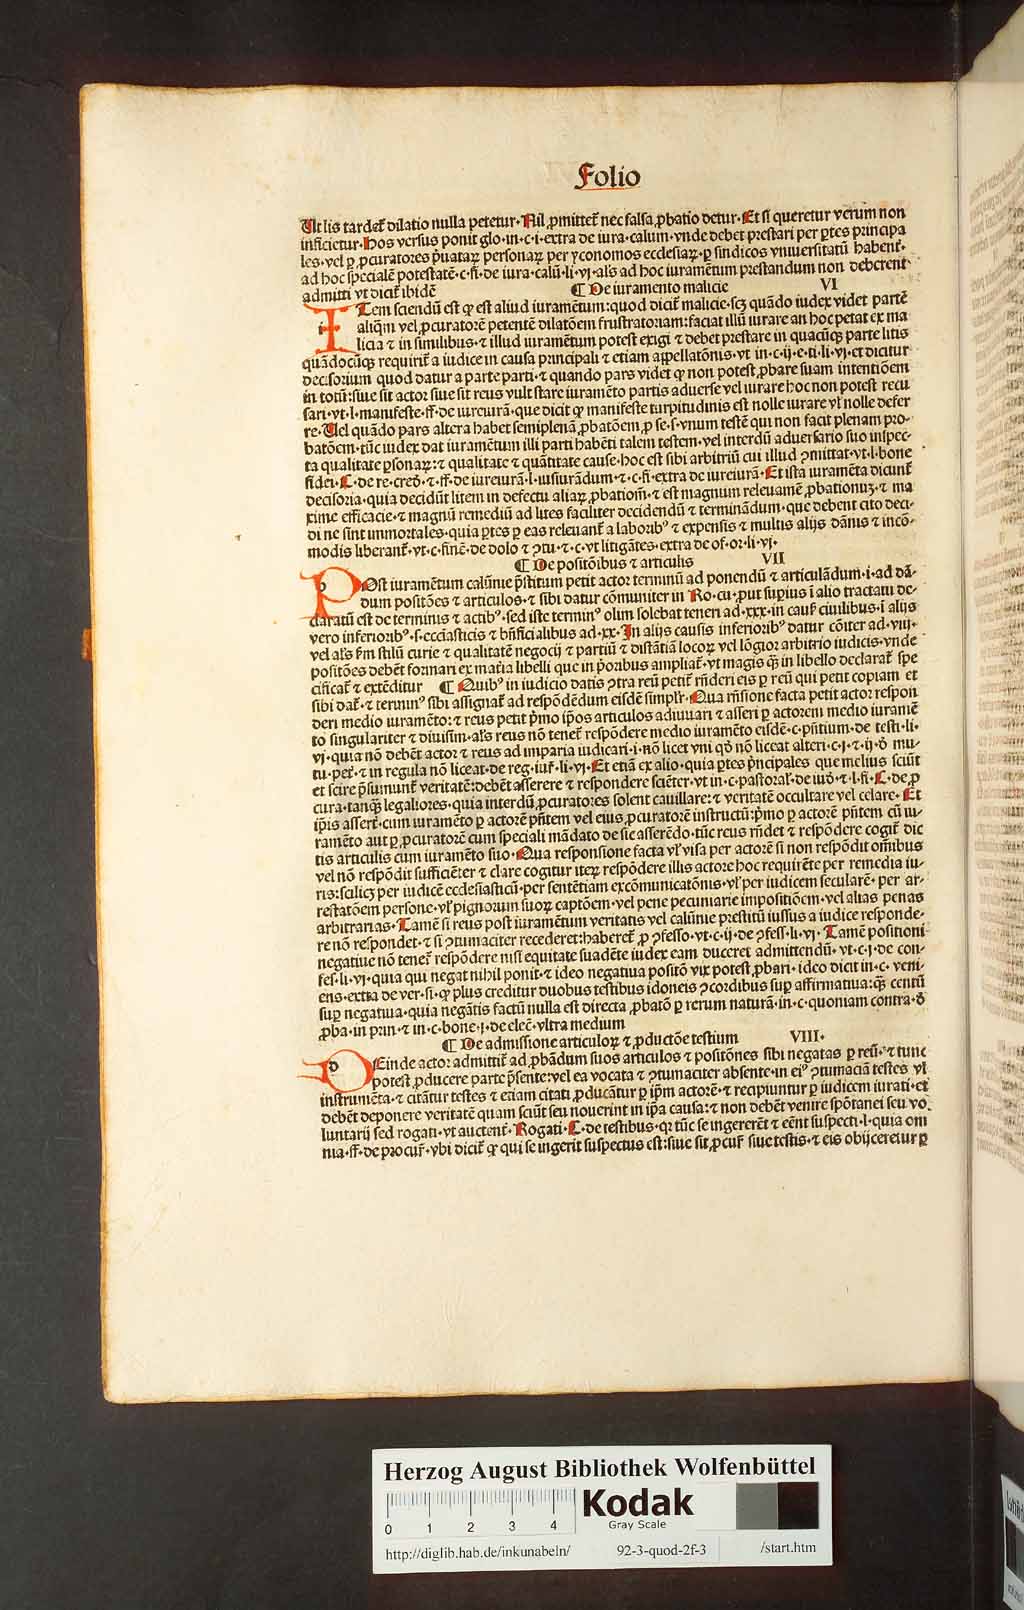 Folio
Ut lis tardet᷑ dilatio nulla petetur· Nil ꝓmittet᷑ nec falsa ꝓbatio detur· Et si queretur verum non
inficietur· Hos versus ponit glo·in·c·i·extra de iura·calum·vnde debet prestari per ꝑtes principa
les·vel ꝑ ꝓcuratores p̄uataꝝ personaꝝ per yconomos ecclesiaꝝ·ꝑ sindicos vniuersitatū habent᷑·
ad hoc specialē potestatē·c·fi·de iura·calū·li·vj·al's ad hoc iuramētum prestandum non deberent
admitti vt dicit᷑ ibidē ¶ De iuramento malicie VI
ITem sciendū est ꝙ est aliud iuramētum:quod dicit᷑ malicie·scꝫ quādo iudex videt partē
aliq̄m vel ꝓcuratorē petentē dilatōem frustratoriam:faciat illū iurare an hoc petat ex ma
licia ⁊ in similibus·⁊ illud iuramētum potest exigi ⁊ debet prestare in quacūqꝫ parte litis
quādocūqꝫ requirit᷑ a iudice in causa principali ⁊ etiam appellatōnis·vt in·c·ij·e·ti·li·vj·et dicitur
decisorium quod datur a parte parti·⁊ quando pars videt ꝙ non potest ꝓbare suam intentiōem
in totū:siue sit actor siue sit reus vult stare iuramēto partis aduerse vel iurare hoc non potest recu
sari·vt·l·manifeste·ff·de iureiurā·que dicit ꝙ manifeste turpitudinis est nolle iurare vl' nolle defer
re·Uel quādo pars altera habet semiplenā ꝓbatōem ꝓ se·s·vnum testē qui non facit plenam pro-
batōem·tūc iudex dat iuramētum illi parti habēti talem testem·vel interdū aduersario suo inspec-
ta qualitate ꝑsonaꝝ:⁊ qualitate ⁊ quātitate cause·hoc est sibi arbitriū cui illud ꝯmittat·vt·l·bone
fidei·C·de re·cred̄·⁊ ff·de iureiurā·l·iusiurādum·⁊·c·fi·extra de iureiurā·Et ista iuramēta dicunt᷑
decisoria·quia decidūt litem in defectu aliaꝝ ꝓbatiom̄·⁊ est magnum releuamē ꝓbationuꝫ·⁊ ma
xime efficacie·⁊ magnū remediū ad lites faciliter decidendū ⁊ terminādum·que debent cito deci-
di ne sint immortales·quia ꝑtes ꝑ eas releuant᷑ a laboribꝰ ⁊ expensis ⁊ multis alijs dānis ⁊ incō-
modis liberant᷑·vt·c·finē·de dolo ⁊ ꝯtu·⁊·c·vt litigātes·extra de of·or·li·vj·
¶ De positōibus ⁊ articulis VII
POst iuramētum calūnie p̄stitum petit actor terminū ad ponendū ⁊ articulādum·i·ad dā-
dum positōes ⁊ articulos·⁊ sibi datur cōmuniter in Ro·cu·put sup̄ius ī alio tractatu de-
claratū est de terminis ⁊ actibꝰ·sed iste terminꝰ olim solebat teneri ad·xxx·in caus᷑ ciuilibus·ī alijs
vero inferioribꝰ·s·ecclāsticis ⁊ bn̄ficialibus ad·xx·In alijs causis inferioribꝰ datur cōiter ad·viij·
vel al's s̄m stilū curie ⁊ qualitatē negocij ⁊ partiū ⁊ distātiā locoꝝ vel lōgior arbitrio iudicis·vnde
positōes debēt formari ex mat̄ia libelli que in p̄oribus ampliat᷑·vt magis q̄ꝫ in libello declarat᷑ spe
cificat᷑ ⁊ extēditur ¶ Quibꝰ in iudicio datis ꝯtra reū petit᷑ rn̄deri eis ꝑ reū qui petit copiam et
sibi dat᷑·⁊ terminꝰ sibi assignat᷑ ad respōdēdum eisdē simplr᷑·Qua rn̄sione facta petit actor respon
deri medio iuramēto:⁊ reus petit p̄mo ip̄os articulos adiuuari ⁊ asseri ꝑ actorem medio iuramē
to singulariter ⁊ diuisim·al's reus nō tenet᷑ respōdere medio iuramēto eisdē·c·pn̄tium·de testi·li·
vj·quia nō debēt actor ⁊ reus ad imparia iudicari·i·nō licet vni qd̄ nō liceat alteri·c·j·⁊·ij·d̄ mu-
tu·pet᷑·⁊ in regula nō liceat·de reg·iur᷑·li·vj·Et etiā ex alio·quia ꝑtes p̄ncipales que melius sciūt
et scire p̄sumunt᷑ veritatē:debēt asserere ⁊ respondere sciēter·vt in·c·pastoral'·de iud̄·⁊·l·fi·C·de ꝓ
cura·tanq̄ꝫ legaliores·quia interdū ꝓcuratores solent cauillare:⁊ veritatē occultare vel celare·Et
ip̄is assert᷑·cum iuramēto ꝑ actorē pn̄tem vel eius ꝓcuratorē instructū:p̄mo ꝑ actorē pn̄tem cū iu-
ramēto aut ꝑ ꝓcuratorē cum speciali mādato de sic asserēdo·tūc reus rn̄det ⁊ respōdere cogit᷑ dic
tis articulis cum iuramēto suo·Qua responsione facta vl' visa per actorē si non respōdit om̄ibus
vel nō respōdit sufficiēter ⁊ clare cogitur iteꝝ respōdere illis actore hoc requirēte per remedia iu-
ris:scilicꝫ per iudicē ecclesiasticū·per sentētiam excōmunicatōnis·vl' per iudicem secularē·per ar-
restatōem persone·vl' pignorum suoꝝ captōem·vel pene pecuniarie impositiōem·vel alias penas
arbitrarias·Tamē si reus post iuramētum veritatis vel calūnie prestitū iussus a iudice responde-
re nō respondet·⁊ si ꝯtumaciter recederet:haberet᷑ ꝓ ꝯfesso·vt·c·ij·de ꝯfess·li·vj·Tamē positioni
negatiue nō tenet᷑ respōdere nisi equitate suadēte iudex eam duceret admittendū·vt·c·j·de con-
fes·li·vj·quia qui negat nihil ponit·⁊ ideo negatiua positō vix potest ꝓbari·ideo dicit in·c·veni-
ens·extra de ver·si·ꝙ plus creditur duobus testibus idoneis ꝯcordibus sup̄ affirmatiua:q̄ꝫ centū
sup̄ negatiua·quia negātis factū nulla est directa ꝓbatō ꝑ rerum naturā·in·c·quoniam contra·d̄
ꝓba·in prin·⁊ in·c·bone·j·de elec̄·vltra medium
¶ De admissione articuloꝝ ⁊ ꝓductōe testium VIII·
DEinde actor admittit᷑ ad ꝓbādum suos articulos ⁊ positōnes sibi negatas ꝑ reū·⁊ tunc
potest ꝓducere parte p̄sente:vel ea vocata ⁊ ꝯtumaciter absente·in eiꝰ ꝯtumaciā testes vl'
instrumēta·⁊ citātur testes ⁊ etiam citati ꝓducātur ꝑ ip̄m actorē·⁊ recipiuntur ꝑ iudicem iurati·et
debēt deponere veritatē quam sciūt seu nouerint in ip̄a causa:⁊ non debēt venire spōtanei seu vo
luntarij sed rogati·vt auctent᷑·Rogati·C·de testibus·qꝛ tūc se ingererēt ⁊ eēnt suspecti·l·quia om
nia·ff·de procur᷑·vbi dicit᷑ ꝙ qui se ingerit suspectus est:siue sit ꝓcur᷑ siue testis·⁊ eis obijceretur ꝑ
Herzog August Bibliothek Wolfenbüttel
0 1 2 3 4
Kodak
Gray Scale
http://diglib.hab.de/inkunabeln/ 92-3-quod-2f-3 /start.htm